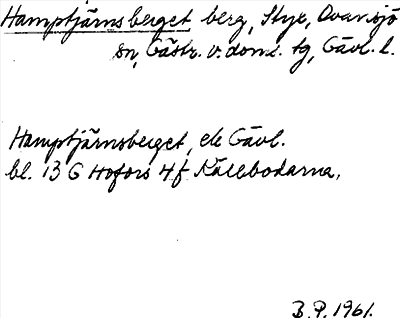 Hamptjärnsberget berg, Styx, Ovansjö
sn, Gästr. v. doms. tg, Gävl. l.
Hamptjärnsberget, ek Gävl.
bl. 13 G Hofors 4f Källbodarna.
B.P. 1961.